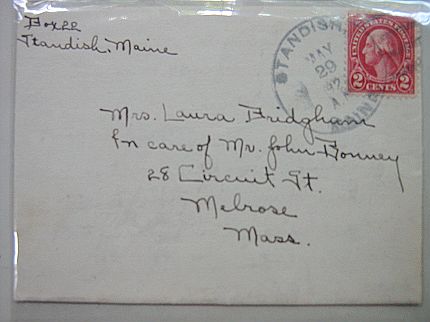 Box 22
Standish, Maine
STANDISH
MAY
29
A.M.
MAINE
UNITED STATES POSTAGE
2 CENTS 2
Mrs. Laura Bridgham
In care of Mr. John Bonney
28 Circuit St.
Melrose
Mass.